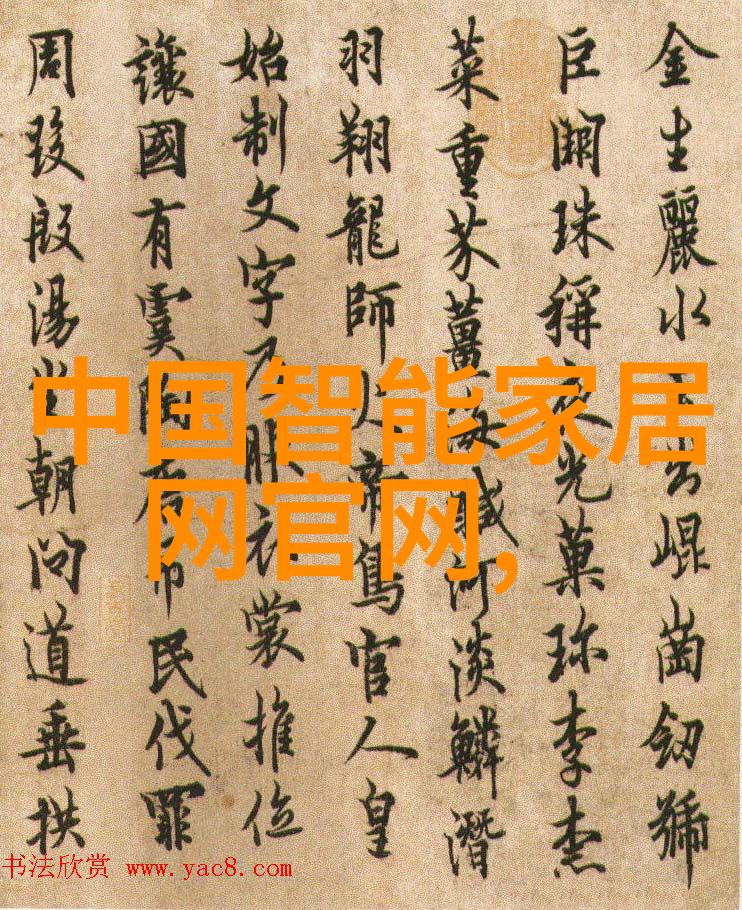 金生麗水出崐崗劒號
巨闕珠稱夜光菓珍李柰
菜重芥薑海鹹河淡鱗潛
羽翔龍師火帝鳥官人皇
始制文字乃服衣裳推位
讓國有虞陶唐弔民伐罪
周發殷湯坐朝問道垂拱
中国智能家居
网官网,
书法欣赏 www.yac8.com